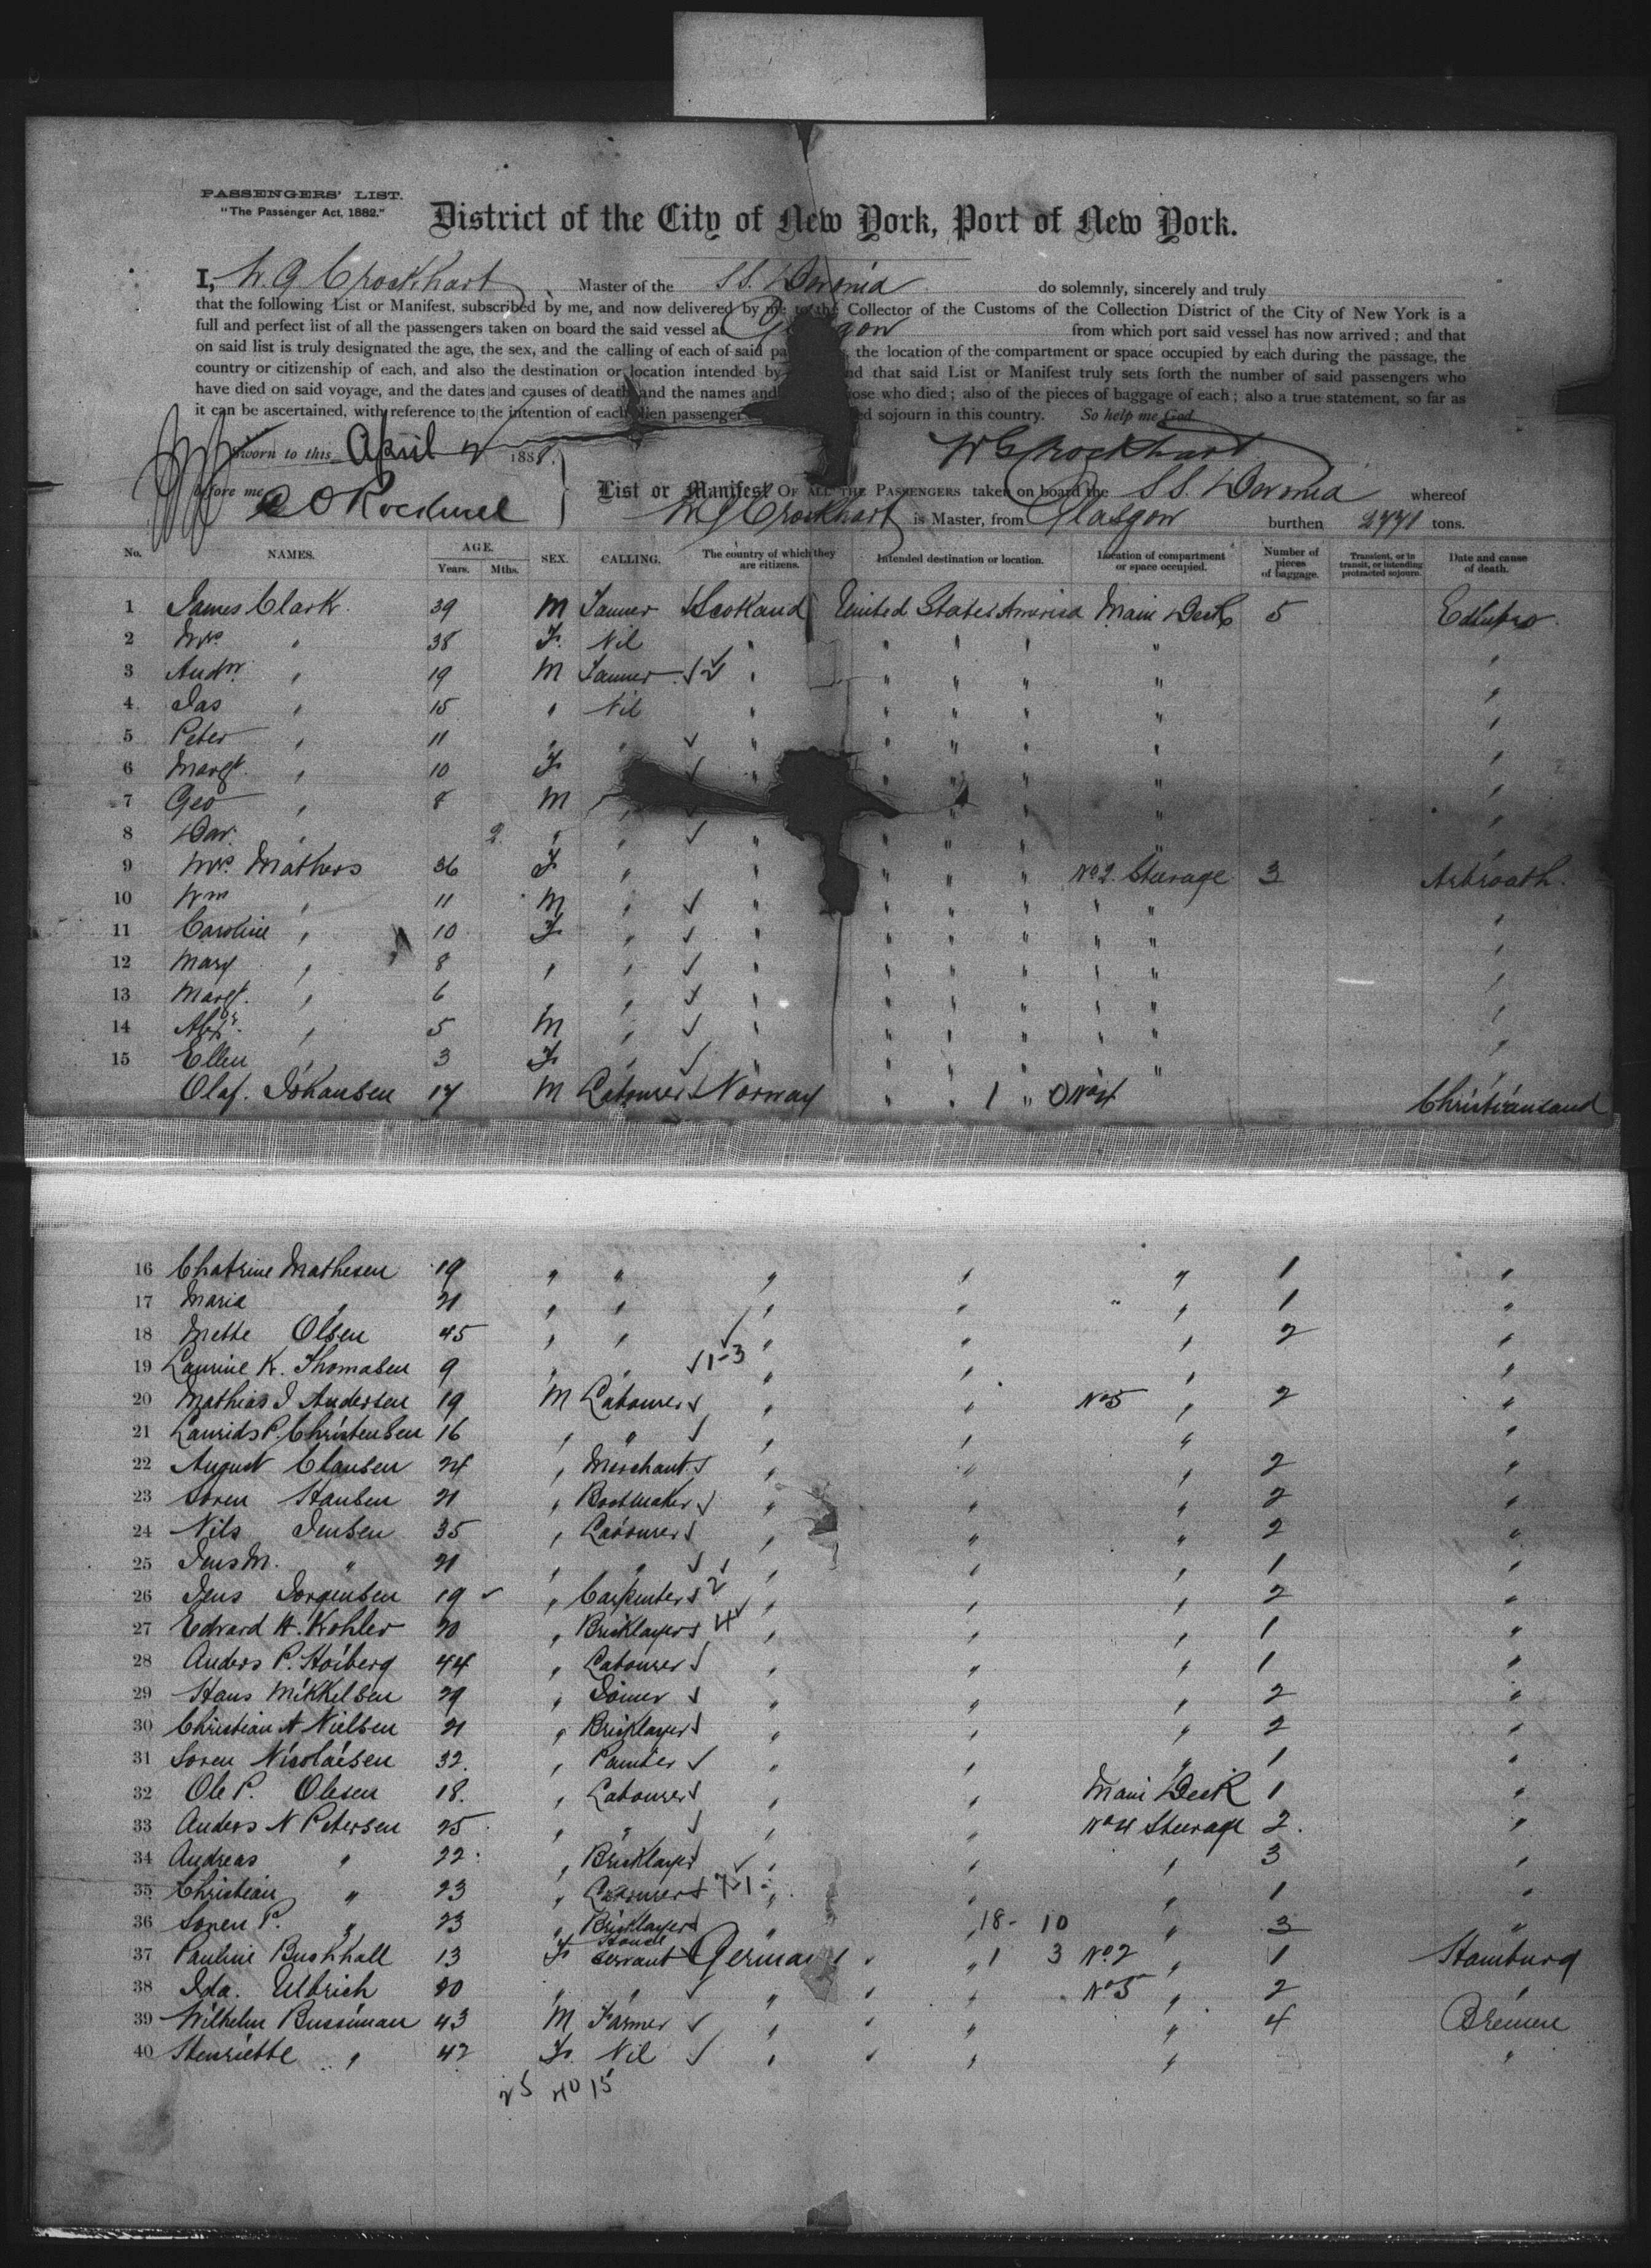 PASSENGERS' LIST.
"The Passenger Act, 1882."
District of the City of New York, Port of New York.
I, W. G Crockhart Master of the SS. Devonia do solemnly, sincerely and truly
that the following List or Manifest, subscribed by me, and now delivered by me to the Collector of the Customs of the Collection District of the City of New York is a
full and perfect list of all the passengers taken on board the said vessel at Glasgow from which port said vessel has now arrived; and that
on said list is truly designated the age, the sex, and the calling of each of said pa the location of the compartment or space occupied by each during the passage, the
country or citizenship of each, and also the destination or location intended by nd that said List or Manifest truly sets forth the number of said passengers who
have died on said voyage, and the dates and causes of death and the names and ose who died; also of the pieces of baggage of each; also a true statement, so far as
it can be ascertained, with reference to the intention of each alien passenger ed sojourn in this country. So help me God
Sworn to this April 2 1888. W G Crockhart
before me
List or Manifest OF ALL THE PASSENGERS taken on board the SS. Devonia whereof
W G Crockhart is Master, from Glasgow burthen 2771 tons.
No. NAMES. AGE. Years. Mths. SEX. CALLING. The country of which they are citizens. Intended destination or location. Location of compartment or space occupied. Number of pieces of baggage. Transient, or in transit, or intending protracted sojourn. Date and cause of death.
1 James Clark 39 M Tanner Scotland United States America Main Deck 5 Edinbro
2 Mrs " 38 F. Nil " " " " " "
3 Andw. " 19 M Tanner " " " " " "
4 Jas " 15 " Nil " " " " " "
5 Peter " 11 " " " " " " " "
6 Margt. " 10 F " " " " " "
7 Geo " 8 M " " " " " "
8 Dav. " 2 " " " " " " " "
9 Mrs. Mathers 36 F " " " " " No 2. Steerage 3 Arbroath.
10 Wm " 11 M " " " " " " " "
11 Caroline " 10 F " " " " " " " "
12 Mary " 8 " " " " " " " " "
13 Margt. " 6 " " " " " " " " "
14 Alexr. " 5 M " " " " " " " "
15 Ellen " 3 F " " " " " " "
Olaf. Johansen 17 M Labourer Norway " " 1 " 0 No 4 Christiansand
16 Chatrine Mathesen 19 " " " " " 1 "
17 Maria " 21 " " " " " 1 "
18 Mette Olsen 45 " " " " " 2 "
19 Laurine K. Thomasen 9 " " 1-3 " " " "
20 Mathias J Andersen 19 M Labourer " " No 5 " 2 "
21 Laurids P. Christensen 16 " " " " " "
22 August Clausen 24 " Merchant " " " 2 "
23 Soren Hansen 21 " Bootmaker " " " 2 "
24 Nils Jensen 35 " Labourer " " " 2 "
25 Jens M. " 21 " " " " " 1 "
26 Jens Jorgensen 19 " Carpenter 2 " " " 2 "
27 Edvard H. Kohler 20 " Bricklayer 4 " " " 1 "
28 Anders P. Hoiberg 44 " Labourer " " " 1 "
29 Hans Mikkelsen 29 " Joiner " " " 2 "
30 Christian A Nielsen 21 " Bricklayer " " " 2 "
31 Soren Nicolaisen 32. " Painter " " " 1 "
32 Ole P. Olesen 18. " Labourer " " Main Deck 1 "
33 Anders N Petersen 25 " " " " No 4 Steerage 2. "
34 Andreas " 22 " Bricklayer " " " 3 "
35 Christian " 23 " Labourer 7-1 " " " 1 "
36 Soren P. " 23 " Bricklayer " " 18- 10 " 3 "
37 Pauline Buchhall 13 F House Servant Germany " " 1 3 No. 2 " 1 Hamburg
38 Ida. Ulbrich 20 " " " " " No 5 " 2 "
39 Wilhelm Bussiman 43 M Farmer " " " " 4 Bremen
40 Henriette " 42 F. Nil " " " " "
25 40 15